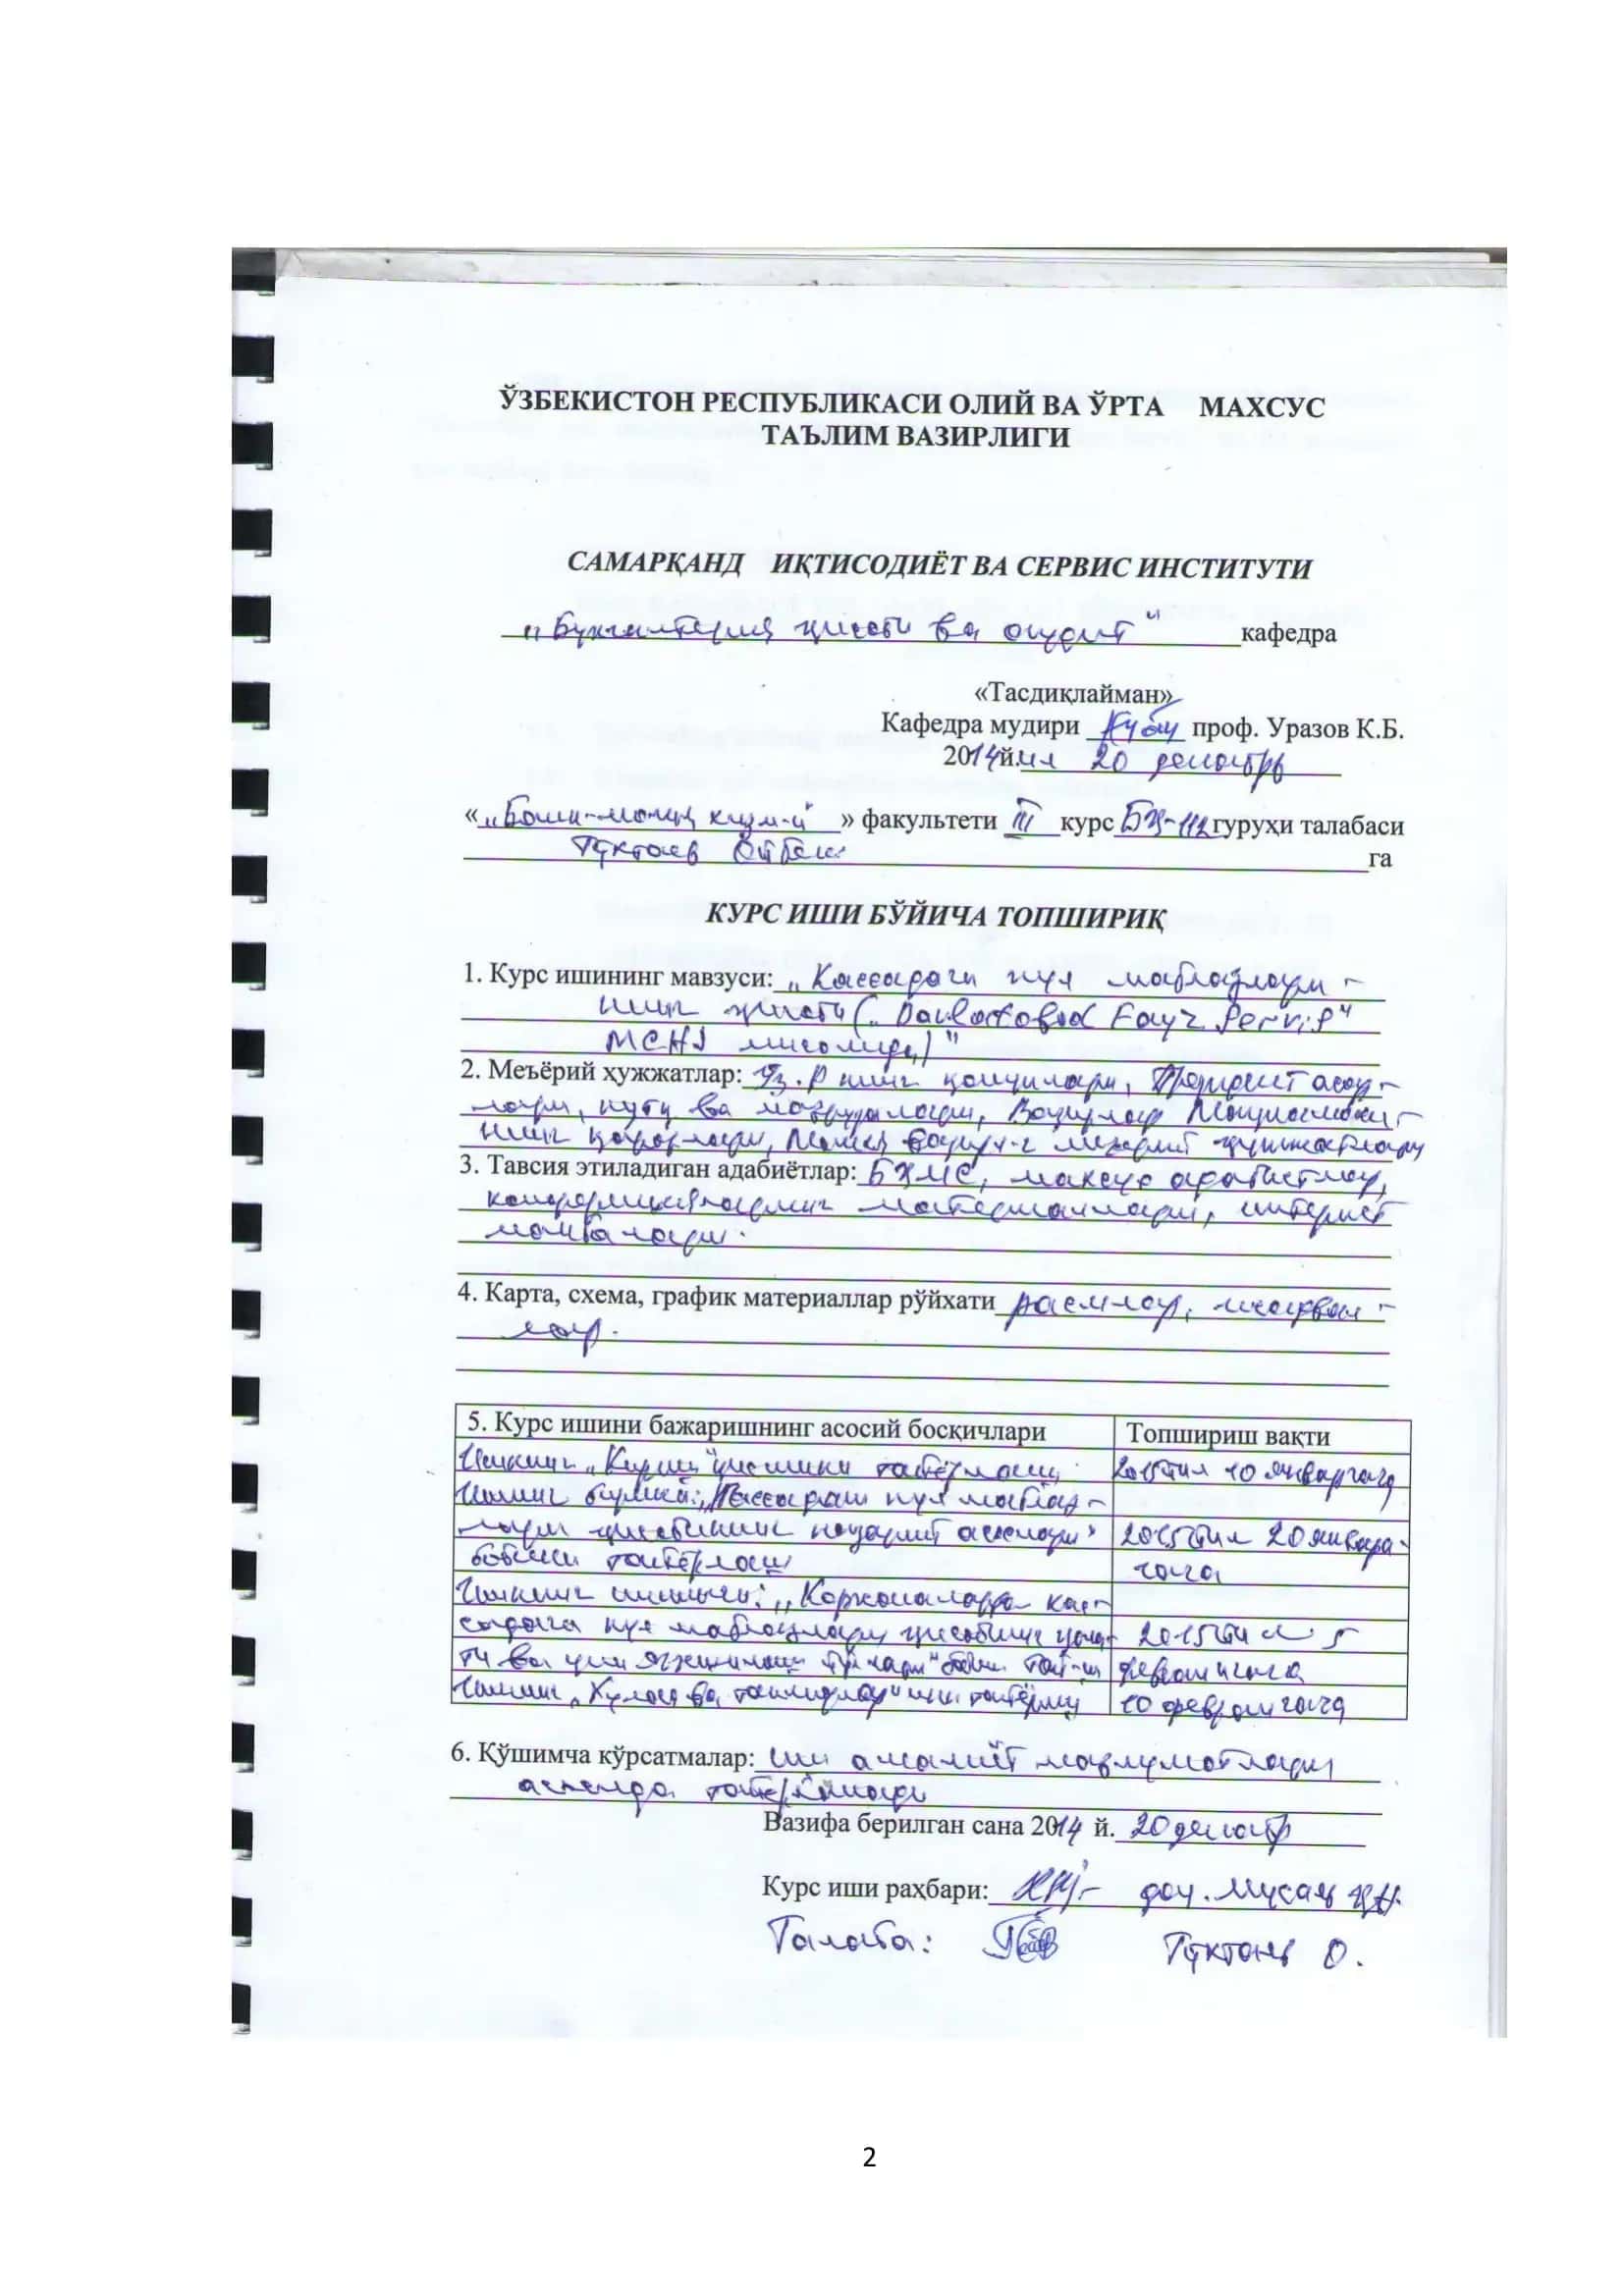 ЎЗБЕКИСТОН РЕСПУБЛИКАСИ ОЛИЙ ВА ЎРТА МАХСУС
ТАЪЛИМ ВАЗИРЛИГИ
САМАРҚАНД ИҚТИСОДИЁТ ВА СЕРВИС ИНСТИТУТИ
„Бухгалтерия ҳисоби ва аудит" кафедра
«Тасдиқлайман»
Кафедра мудири проф. Уразов К.Б.
2014 йил 20 декабрь
« » факультети III курс БҲ-112 гуруҳи талабаси
Тўхтаев Ойбек га
КУРС ИШИ БЎЙИЧА ТОПШИРИҚ
1. Курс ишининг мавзуси: „Кассадаги пул маблағлари-
нинг ҳисоби („Davlatobod Fayz Servis"
МСНJ мисолида)"
2. Меъёрий ҳужжатлар: Ўз.Р нинг қонунлари, Президент асар-
лари, нутқ ва маърузалари, Вазирлар Маҳкамаси-
нинг қарорлари, Молия меъёрий ҳужжатлари
3. Тавсия этиладиган адабиётлар: БҲМС, махсус адабиётлар,
конференцияларнинг материаллари, интернет
манбалари.
4. Карта, схема, график материаллар рўйхати расмлар, жадвал-
лар.
5. Курс ишини бажаришнинг асосий босқичлари Топшириш вақти
Ишнинг „Кириш" қисмини тайёрлаш 2015 йил 10 январгача
Ишнинг „Кассадаги пул маблағ-
лари ҳисобининг назарий асослари" 2015 йил 20 январ-
бобини тайёрлаш гача
Ишнинг иккинчи: „Корхоналарда кас-
садаги пул маблағлари ҳисобининг ҳола- 2015 йил 5
ти ва уни яхшилаш йўллари" февралгача
Ишнинг „Хулоса ва таклифлар"ини тайёрлаш 10 февралгача
6. Қўшимча кўрсатмалар: иш амалиёт маълумотлари
асосида тайёрланади
Вазифа берилган сана 2014 й. 20 декабр
Курс иши раҳбари: доц. Мусаев
Талаба: Тўхтаев О.
2